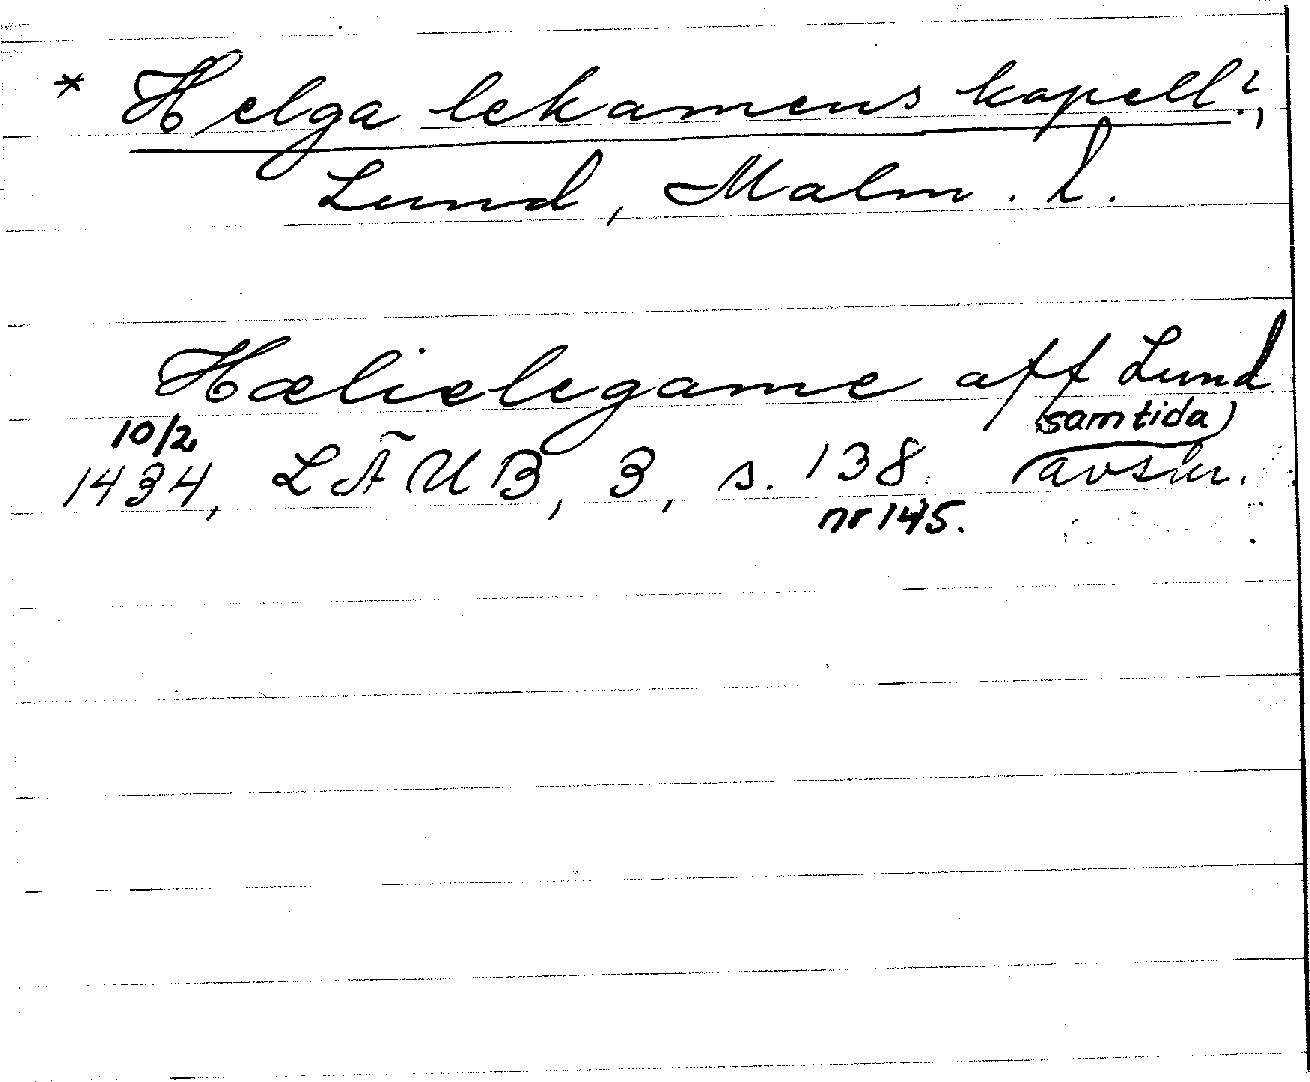 * Helga lekamens kapell?,
Lund, Malm. l.
Hælielegame aff Lund
10/2 (samtida)
1434, LÄUB, 3, s. 138 avskr.
nr 145.